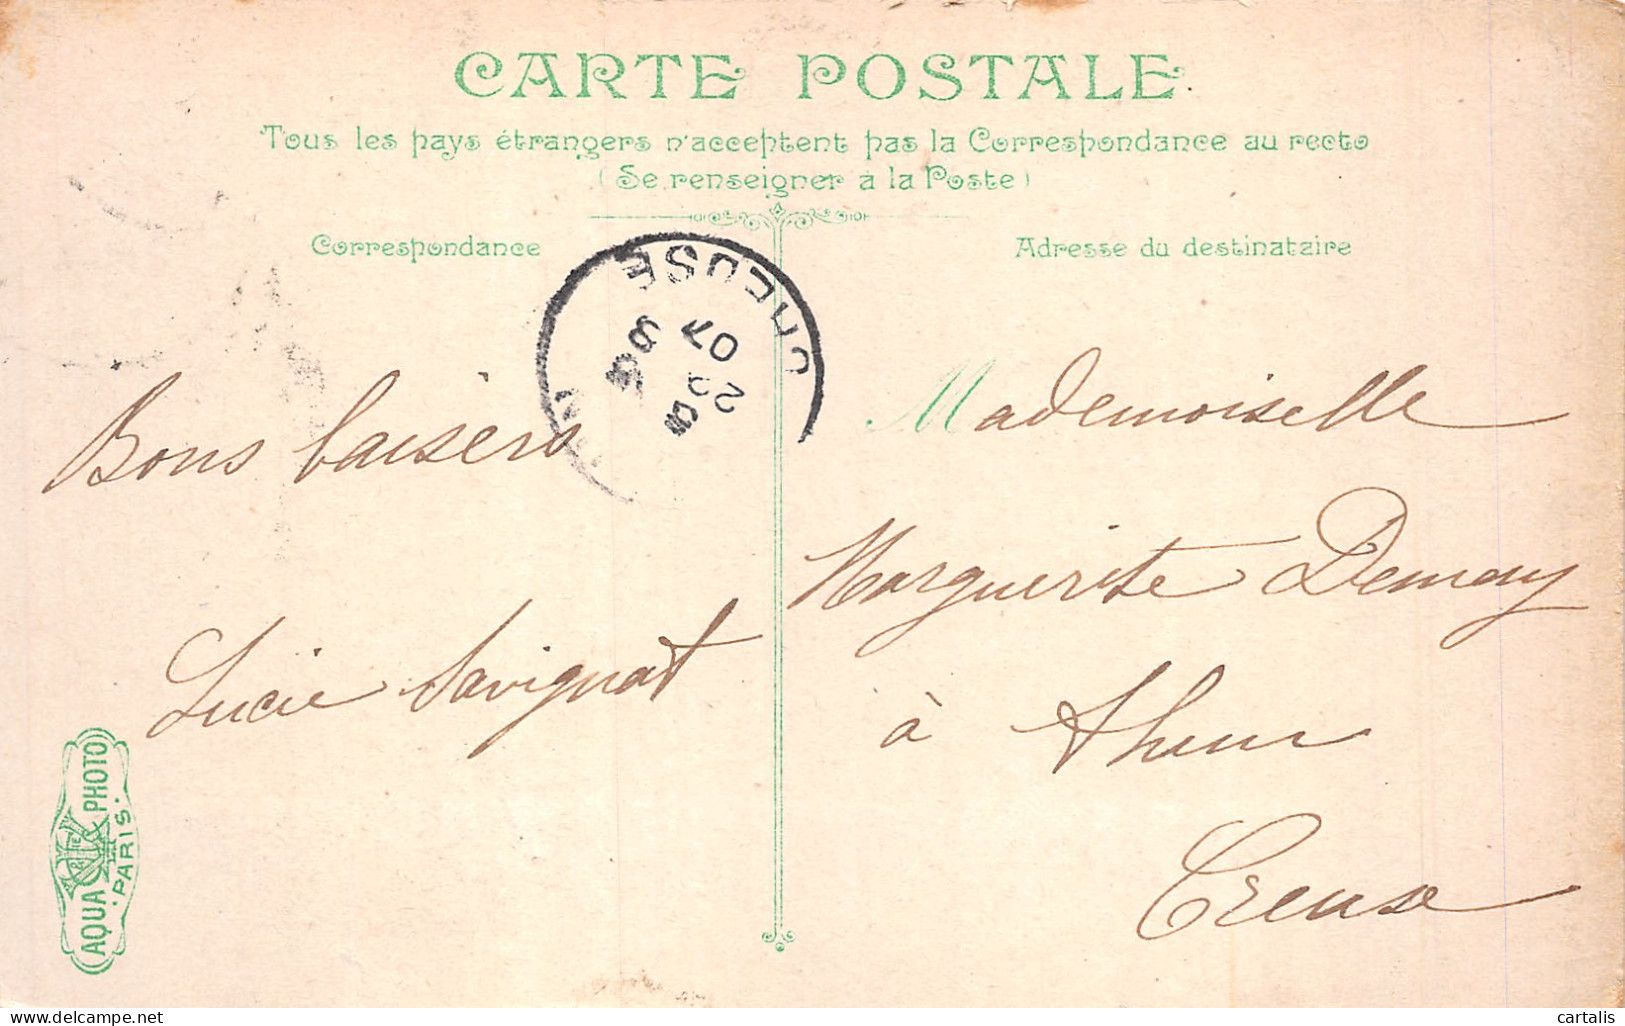 CARTE POSTALE
Tous les pays étrangers n'acceptent pas la Correspondance au recto
(Se renseigner à la Poste)
Correspondance
Adresse du destinataire
CREUSE
07
Bons baisers
Lucie Savignat
Mademoiselle
Marguerite Demay
à
Creuse
AQUA PHOTO
PARIS
delcampe.net
cartalis